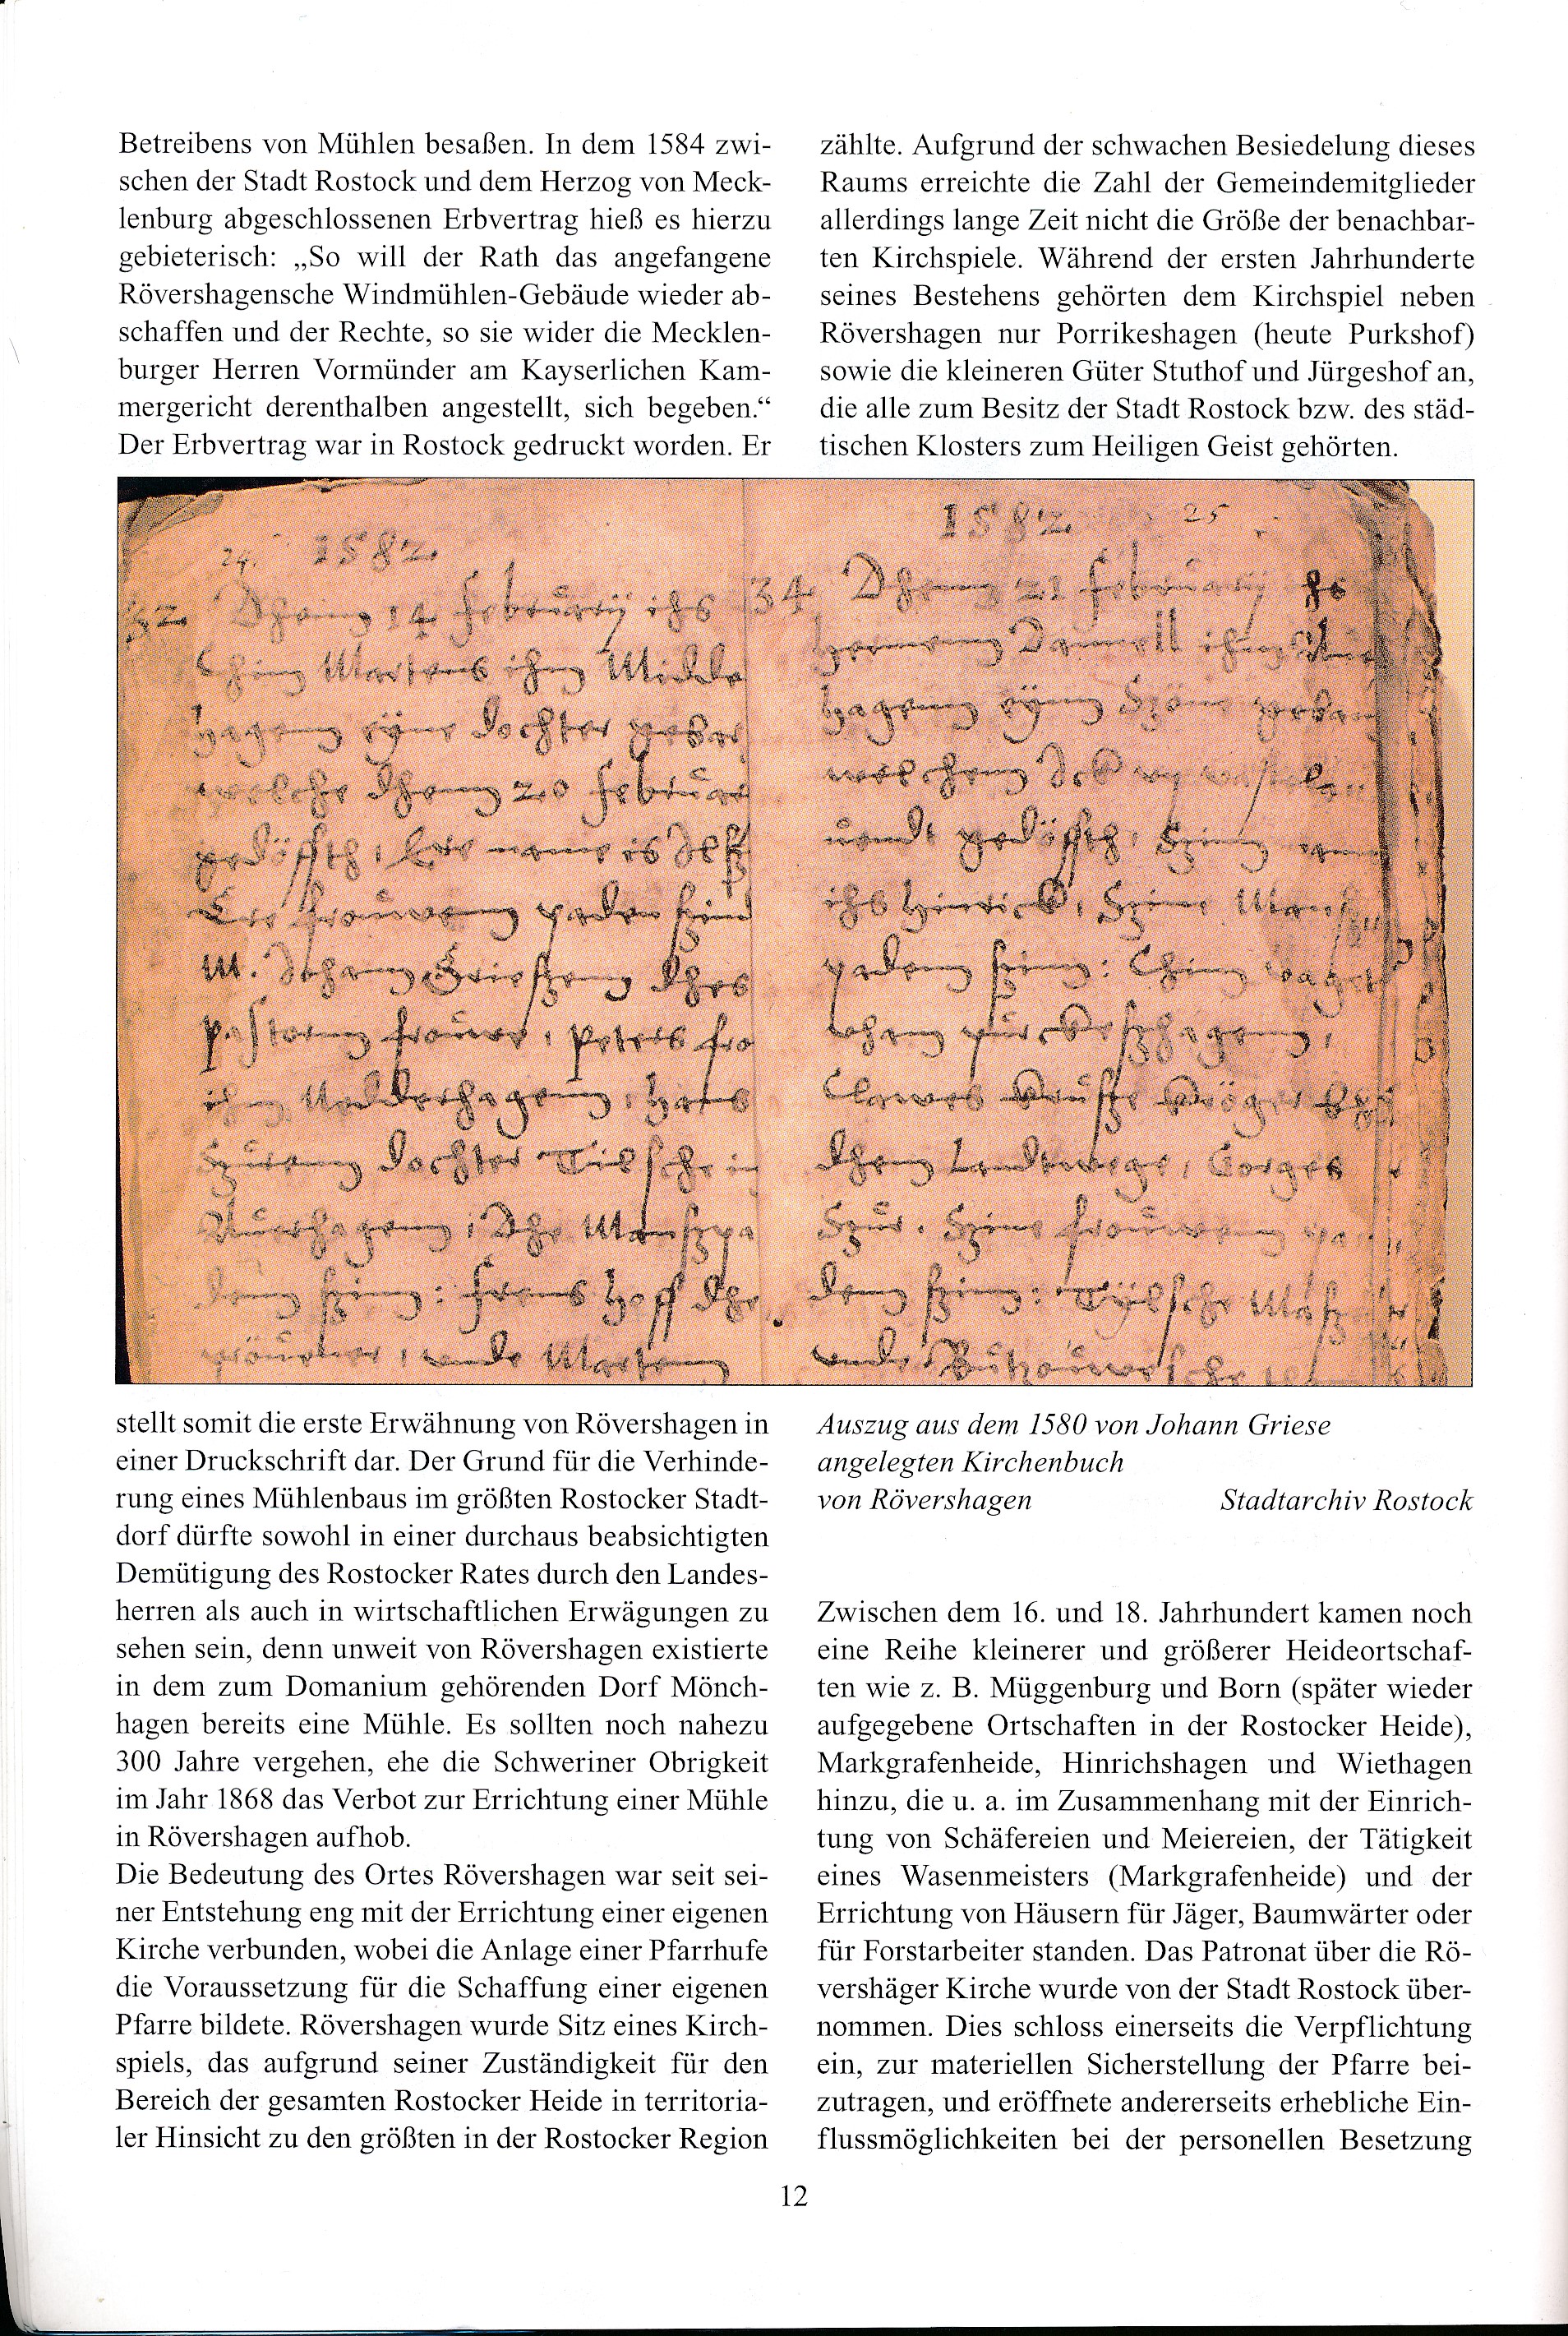 Betreibens von Mühlen besaßen. In dem 1584 zwi-
schen der Stadt Rostock und dem Herzog von Meck-
lenburg abgeschlossenen Erbvertrag hieß es hierzu
gebieterisch: „So will der Rath das angefangene
Rövershagensche Windmühlen-Gebäude wieder ab-
schaffen und der Rechte, so sie wider die Mecklen-
burger Herren Vormünder am Kayserlichen Kam-
mergericht derenthalben angestellt, sich begeben.“
Der Erbvertrag war in Rostock gedruckt worden. Er
zählte. Aufgrund der schwachen Besiedelung dieses
Raums erreichte die Zahl der Gemeindemitglieder
allerdings lange Zeit nicht die Größe der benachbar-
ten Kirchspiele. Während der ersten Jahrhunderte
seines Bestehens gehörten dem Kirchspiel neben
Rövershagen nur Porrikeshagen (heute Purkshof)
sowie die kleineren Güter Stuthof und Jürgeshof an,
die alle zum Besitz der Stadt Rostock bzw. des städ-
tischen Klosters zum Heiligen Geist gehörten.
24. 1582.
32 Dhenn 14 february ihs
Chim Martens ihm Midde
hagenn eyne dochter gebar
welche dhenn 20 februar
gedöfft, Ere name is Ilse
Ere frouwenn paden szind
M. Johann Grieszenn dhes
pastorn frouwe, Peters fro
ihm Nedderhagenn, Hans
dochter Tilsche
Duerhagenn, Dhe Manszpa
denn szinn: frens Hoff dhe
unde Martenn
1582. 25
34 Dhenn 21 february ihs
hermenn Dannell ihm
hagenn eynn Szöne gebar
welchenn Ick
gedöfft, Szinn
ihs Hinrick, Szine Mansz
padenn szinn: Chim
Clawes Krusze Kröger
dhenn Landtwege, Gorges
Szur. Szine frouwenn pa
denn szinn: Tylsche
unde
stellt somit die erste Erwähnung von Rövershagen in
einer Druckschrift dar. Der Grund für die Verhinde-
rung eines Mühlenbaus im größten Rostocker Stadt-
dorf dürfte sowohl in einer durchaus beabsichtigten
Demütigung des Rostocker Rates durch den Landes-
herren als auch in wirtschaftlichen Erwägungen zu
sehen sein, denn unweit von Rövershagen existierte
in dem zum Domanium gehörenden Dorf Mönch-
hagen bereits eine Mühle. Es sollten noch nahezu
300 Jahre vergehen, ehe die Schweriner Obrigkeit
im Jahr 1868 das Verbot zur Errichtung einer Mühle
in Rövershagen aufhob.
Die Bedeutung des Ortes Rövershagen war seit sei-
ner Entstehung eng mit der Errichtung einer eigenen
Kirche verbunden, wobei die Anlage einer Pfarrhufe
die Voraussetzung für die Schaffung einer eigenen
Pfarre bildete. Rövershagen wurde Sitz eines Kirch-
spiels, das aufgrund seiner Zuständigkeit für den
Bereich der gesamten Rostocker Heide in territoria-
ler Hinsicht zu den größten in der Rostocker Region
Auszug aus dem 1580 von Johann Griese
angelegten Kirchenbuch
von Rövershagen Stadtarchiv Rostock
Zwischen dem 16. und 18. Jahrhundert kamen noch
eine Reihe kleinerer und größerer Heideortschaf-
ten wie z. B. Müggenburg und Born (später wieder
aufgegebene Ortschaften in der Rostocker Heide),
Markgrafenheide, Hinrichshagen und Wiethagen
hinzu, die u. a. im Zusammenhang mit der Einrich-
tung von Schäfereien und Meiereien, der Tätigkeit
eines Wasenmeisters (Markgrafenheide) und der
Errichtung von Häusern für Jäger, Baumwärter oder
für Forstarbeiter standen. Das Patronat über die Rö-
vershäger Kirche wurde von der Stadt Rostock über-
nommen. Dies schloss einerseits die Verpflichtung
ein, zur materiellen Sicherstellung der Pfarre bei-
zutragen, und eröffnete andererseits erhebliche Ein-
flussmöglichkeiten bei der personellen Besetzung
12